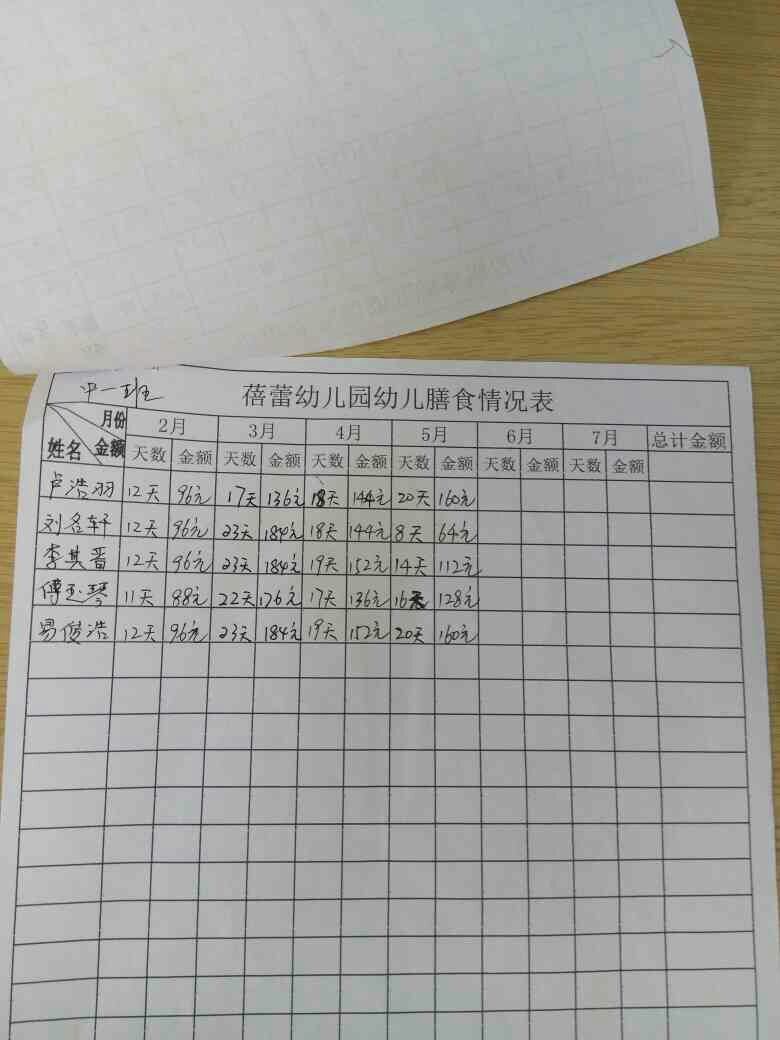 中一班
蓓蕾幼儿园幼儿膳食情况表
月份 金额 姓名 2月 3月 4月 5月 6月 7月 总计金额
天数 金额 天数 金额 天数 金额 天数 金额 天数 金额 天数 金额
卢浩羽 12天 96元 17天 136元 18天 144元 20天 160元
刘名轩 12天 96元 23天 184元 18天 144元 8天 64元
李其晋 12天 96元 23天 184元 19天 152元 14天 112元
傅玉琴 11天 88元 22天 176元 17天 136元 16天 128元
易俊浩 12天 96元 23天 184元 19天 152元 20天 160元